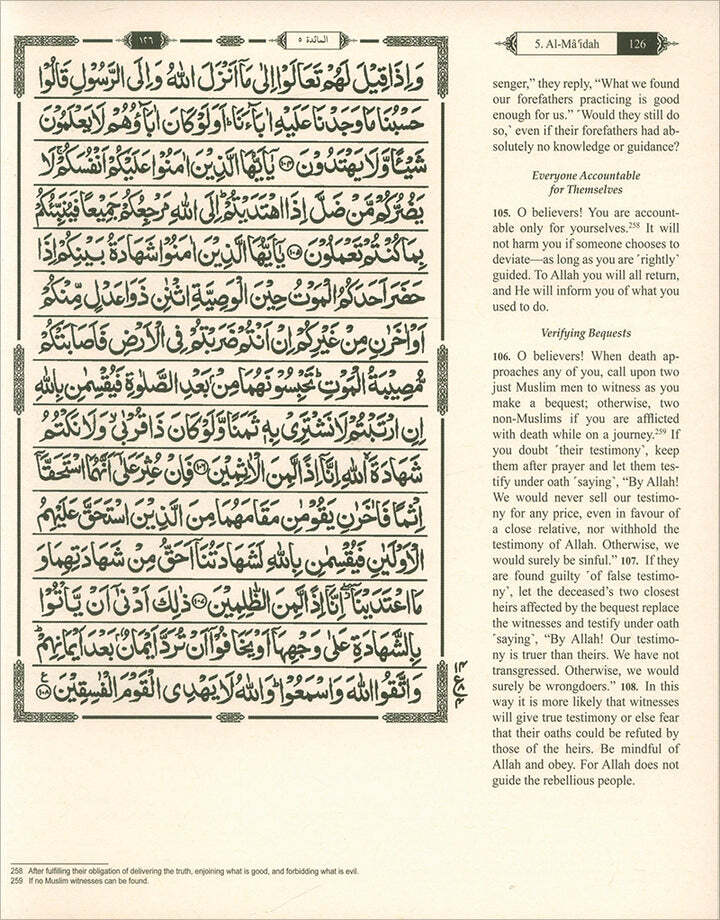 ١٢٦
المائدة ٥
5. Al-Mâ'idah 126
وَاِذَا قِيْلَ لَهُمْ تَعَالَوْا اِلٰى مَاۤ اَنْزَلَ اللّٰهُ وَاِلَى الرَّسُوْلِ قَالُوْا
حَسْبُنَا مَا وَجَدْنَا عَلَيْهِ اٰبَآءَنَا ؕ اَوَلَوْ كَانَ اٰبَآؤُهُمْ لَا يَعْلَمُوْنَ
شَيْـًٔا وَّلَا يَهْتَدُوْنَ ﴿۱۰۴﴾ يٰۤاَيُّهَا الَّذِيْنَ اٰمَنُوْا عَلَيْكُمْ اَنْفُسَكُمْ ۚ لَا
يَضُرُّكُمْ مَّنْ ضَلَّ اِذَا اهْتَدَيْتُمْ ؕ اِلَى اللّٰهِ مَرْجِعُكُمْ جَمِيْعًا فَيُنَبِّئُكُمْ
بِمَا كُنْتُمْ تَعْمَلُوْنَ ﴿۱۰۵﴾ يٰۤاَيُّهَا الَّذِيْنَ اٰمَنُوْا شَهَادَةُ بَيْنِكُمْ اِذَا
حَضَرَ اَحَدَكُمُ الْمَوْتُ حِيْنَ الْوَصِيَّةِ اثْنٰنِ ذَوَا عَدْلٍ مِّنْكُمْ
اَوْ اٰخَرٰنِ مِنْ غَيْرِكُمْ اِنْ اَنْتُمْ ضَرَبْتُمْ فِى الْاَرْضِ فَاَصَابَتْكُمْ
مُّصِيْبَةُ الْمَوْتِ ؕ تَحْبِسُوْنَهُمَا مِنْۢ بَعْدِ الصَّلٰوةِ فَيُقْسِمٰنِ بِاللّٰهِ
اِنِ ارْتَبْتُمْ لَا نَشْتَرِىْ بِهٖ ثَمَنًا وَّلَوْ كَانَ ذَا قُرْبٰى ۙ وَلَا نَكْتُمُ
شَهَادَةَ ۙ اللّٰهِ اِنَّاۤ اِذًا لَّمِنَ الْاٰثِمِيْنَ ﴿۱۰۶﴾ فَاِنْ عُثِرَ عَلٰٓى اَنَّهُمَا اسْتَحَقَّاۤ
اِثْمًا فَاٰخَرٰنِ يَقُوْمٰنِ مَقَامَهُمَا مِنَ الَّذِيْنَ اسْتَحَقَّ عَلَيْهِمُ
الْاَوْلَيٰنِ فَيُقْسِمٰنِ بِاللّٰهِ لَشَهَادَتُنَاۤ اَحَقُّ مِنْ شَهَادَتِهِمَا وَ
مَا اعْتَدَيْنَاۤ ۖ اِنَّاۤ اِذًا لَّمِنَ الظّٰلِمِيْنَ ﴿۱۰۷﴾ ذٰلِكَ اَدْنٰٓى اَنْ يَّاْتُوْا
بِالشَّهَادَةِ عَلٰى وَجْهِهَاۤ اَوْ يَخَافُوْۤا اَنْ تُرَدَّ اَيْمَانٌۢ بَعْدَ اَيْمَانِهِمْ ؕ
وَاتَّقُوا اللّٰهَ وَاسْمَعُوْا ؕ وَاللّٰهُ لَا يَهْدِى الْقَوْمَ الْفٰسِقِيْنَ ﴿۱۰۸﴾
senger,” they reply, “What we found
our forefathers practicing is good
enough for us.” ˹Would they still do
so,˺ even if their forefathers had ab-
solutely no knowledge or guidance?
Everyone Accountable
for Themselves
105. O believers! You are account-
able only for yourselves.258 It will
not harm you if someone chooses to
deviate—as long as you are ˹rightly˺
guided. To Allah you will all return,
and He will inform you of what you
used to do.
Verifying Bequests
106. O believers! When death ap-
proaches any of you, call upon two
just Muslim men to witness as you
make a bequest; otherwise, two
non-Muslims if you are afflicted
with death while on a journey.259 If
you doubt ˹their testimony˺, keep
them after prayer and let them tes-
tify under oath ˹saying˺, “By Allah!
We would never sell our testimo-
ny for any price, even in favour of
a close relative, nor withhold the
testimony of Allah. Otherwise, we
would surely be sinful.” 107. If they
are found guilty ˹of false testimo-
ny˺, let the deceased’s two closest
heirs affected by the bequest replace
the witnesses and testify under oath
˹saying˺, “By Allah! Our testimo-
ny is truer than theirs. We have not
transgressed. Otherwise, we would
surely be wrongdoers.” 108. In this
way it is more likely that witnesses
will give true testimony or else fear
that their oaths could be refuted by
those of the heirs. Be mindful of
Allah and obey. For Allah does not
guide the rebellious people.
258 After fulfilling their obligation of delivering the truth, enjoining what is good, and forbidding what is evil.
259 If no Muslim witnesses can be found.